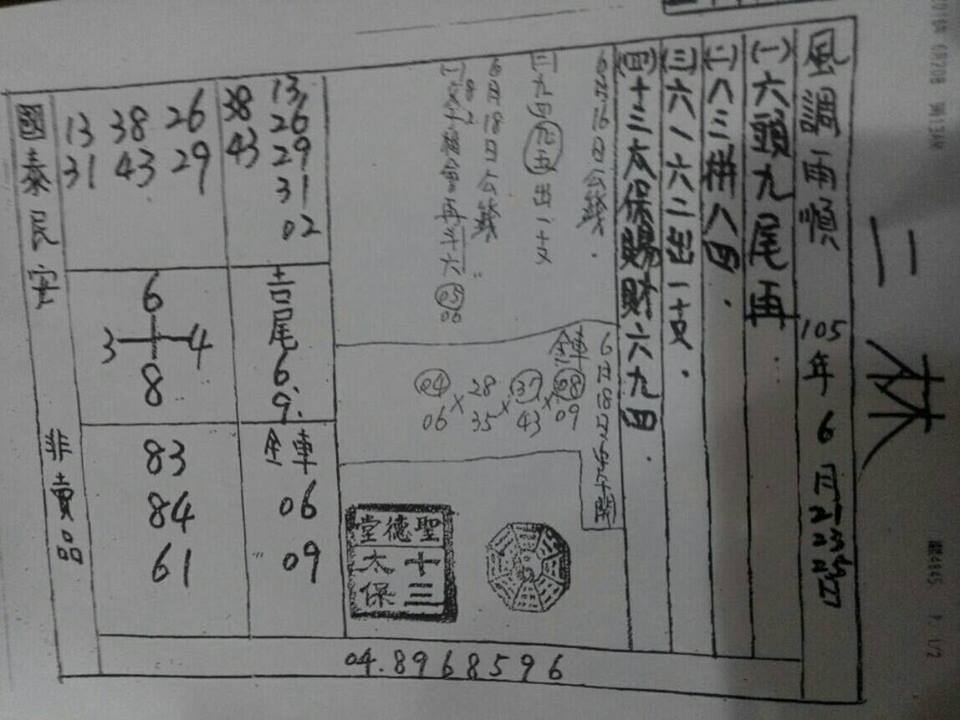 風調雨順 105年6月21
(一)六頭九尾再
(二)八三拼八四.
(三)六八六二出一支.
(四)十三太保賜財六九四.
6月16日公錢.
(三)九四九五出一支
6月18日公錢
6月18日
全車
08 09
×
37 43
×
28 35
×
04 06
05
06
聖德堂
十三太保
13 26 29 31 02
38 43
吉尾 6. 9.
全車 06 09
26 29
38 43
13 31
6
3 4
8
83 84 61
國泰民安 非賣品
04.8968596
二 本